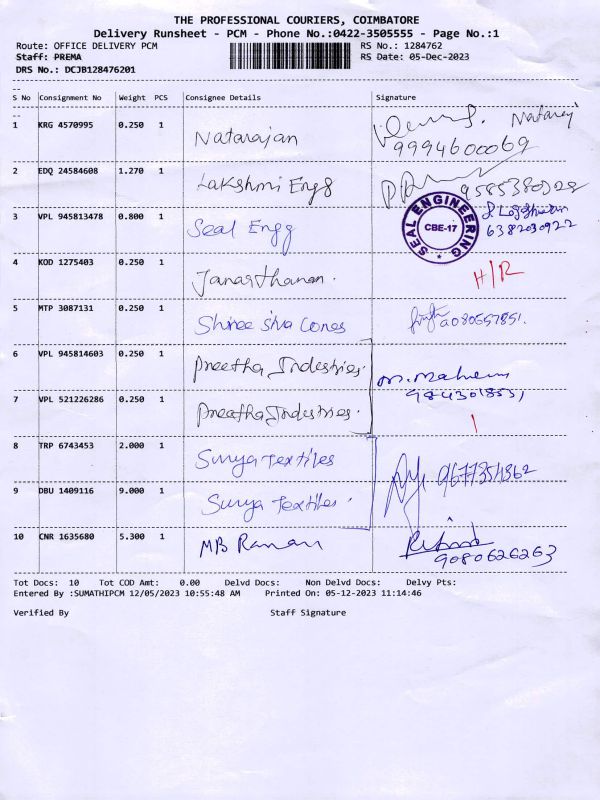 THE PROFESSIONAL COURIERS, COIMBATORE
Delivery Runsheet - PCM - Phone No.:0422-3505555 - Page No.:1
Route: OFFICE DELIVERY PCM RS No.: 1284762
Staff: PREMA RS Date: 05-Dec-2023
DRS No.: DCJB128476201
S No Consignment No Weight PCS Consignee Details Signature
1 KRG 4570995 0.250 1 Natarajan Nataraj
9994600069
2 EDQ 24584608 1.270 1 Lakshmi Engg
3 VPL 945813478 0.800 1 Seal Engg SEAL ENGINEERING CBE-17
6382030922
4 KOD 1275403 0.250 1 Janarthanan. H/R
5 MTP 3087131 0.250 1 Shiree Siva Cones
6 VPL 945814603 0.250 1 Preetha Indestries
7 VPL 521226286 0.250 1 Preetha Indestries.
8 TRP 6743453 2.000 1 Surya Textiles
9 DBU 1409116 9.000 1 Surya Textiles.
10 CNR 1635680 5.300 1 MB Raman
9080626263
Tot Docs: 10 Tot COD Amt: 0.00 Delvd Docs: Non Delvd Docs: Delvy Pts:
Entered By :SUMATHIPCM 12/05/2023 10:55:48 AM Printed On: 05-12-2023 11:14:46
Verified By Staff Signature